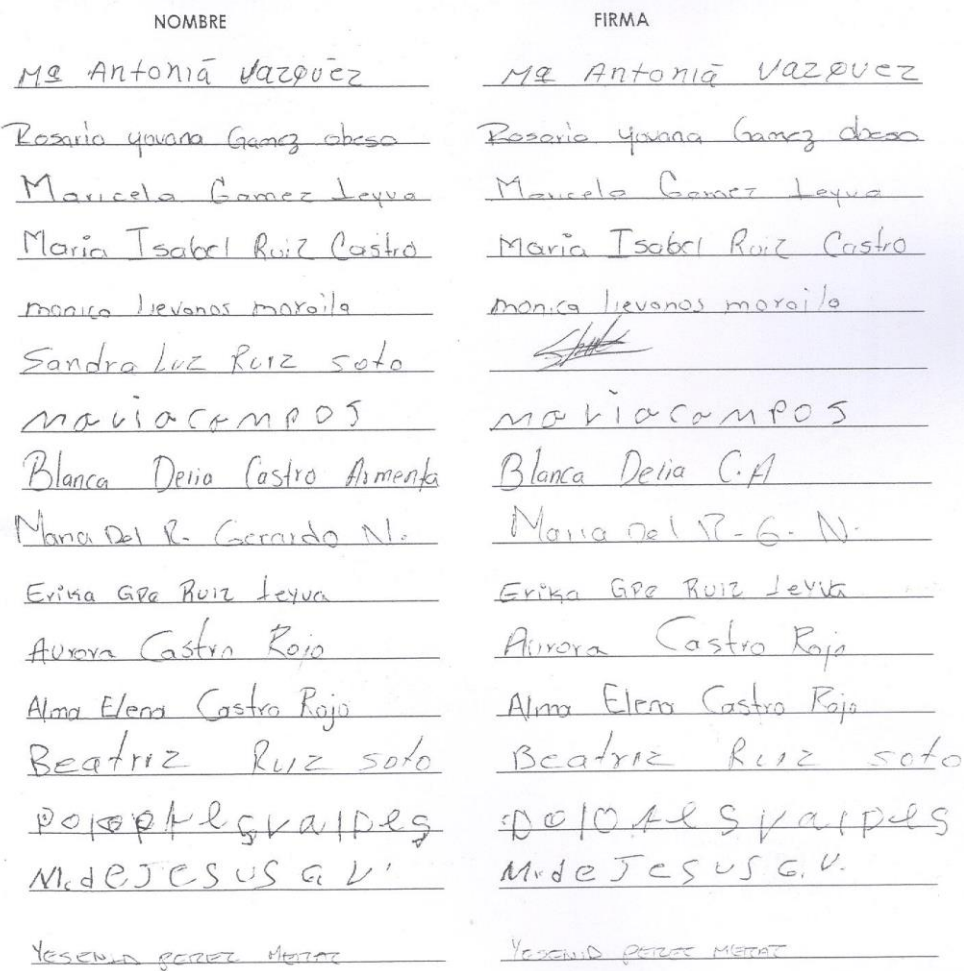 NOMBRE FIRMA
Mª Antoniā Vazquez Mª Antoniā Vazquez
Rosario yovana Gamez obeso Rosario yovana Gamez obeso
Maricela Gamez Leyva Maricela Gamez Leyva
Maria Isabel Ruiz Castro Maria Isabel Ruiz Castro
monica lievanos monica lievanos
Sandra Luz Ruiz soto
maria campos maria campos
Blanca Delia Castro Armenta Blanca Delia C.A
Maria Del R. Gerardo N. Maria Del R. G. N.
Erika GPe Ruiz Leyva Erika GPe Ruiz Leyva
Aurora Castro Rojo Aurora Castro Rojo
Alma Elena Castro Rojo Alma Elena Castro Rojo
Beatriz Ruiz soto Beatriz Ruiz soto
valdes valdes
M. de JESUS G. V. M. de JESUS G. V.
YESENIA PEREZ YESENIA PEREZ